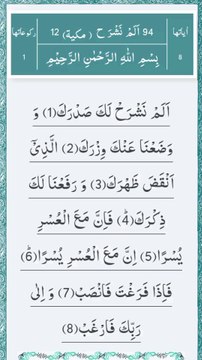 اٰیاتها 94 اَلَمْ نَشْرَحْ ( مكية) 12 ركوعاتها
8 بِسْمِ اللّٰهِ الرَّحْمٰنِ الرَّحِیْمِ 1
اَلَمْ نَشْرَحْ لَكَ صَدْرَكَ(1) وَ
وَضَعْنَا عَنْكَ وِزْرَكَ(2) الَّذِیْۤ
اَنْقَضَ ظَهْرَكَ(3) وَ رَفَعْنَا لَكَ
ذِكْرَكَ(4) فَاِنَّ مَعَ الْعُسْرِ
یُسْرًا(5) اِنَّ مَعَ الْعُسْرِ یُسْرًا(6)ؕ
فَاِذَا فَرَغْتَ فَانْصَبْ(7) وَ اِلٰى
رَبِّكَ فَارْغَبْ(8)